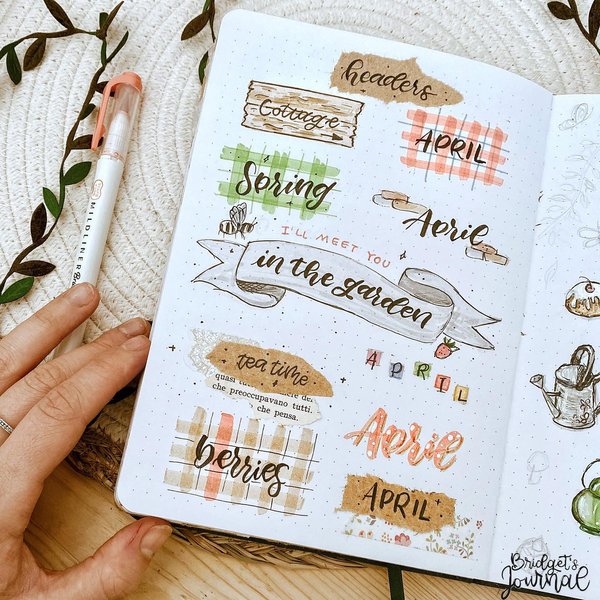 headers
Cottage
APRIL
Spring
April
I'LL MEET YOU
in the garden
APRIL
tea time
che preoccupavano tutti.
che pensa.
April
berries
APRIL
MILDLINER
Bridget's
Journal